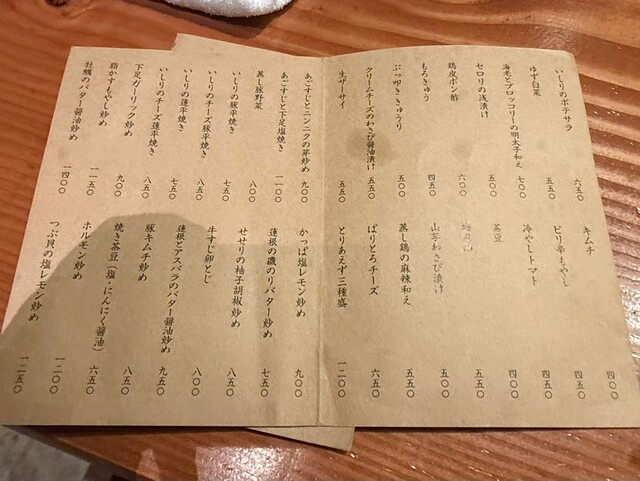 いしりのポテサラ 六五〇
ゆず白菜 五五〇
海老とブロッコリーの明太子和え 七〇〇
セロリの浅漬け 五〇〇
鶏皮ポン酢 六〇〇
もろきゅう 四五〇
ぶっ叩ききゅうり 五五〇
クリームチーズのわさび醤油漬け 五五〇
生ザーサイ 五五〇
キムチ 四〇〇
ピリ辛もやし 四五〇
冷やしトマト 四〇〇
茶豆 五五〇
五五〇
山芋わさび漬け 五五〇
蒸し鶏の麻辣和え 五五〇
ぱりとろチーズ 六五〇
とりあえず三種盛 一二〇〇
あごすじとニンニクの芽炒め 九〇〇
あごすじと下足塩焼き 一一〇〇
蒸し豚野菜 八〇〇
いしりの豚平焼き 七五〇
いしりのチーズ豚平焼き 八五〇
いしりの蓮平焼き 七五〇
いしりのチーズ蓮平焼き 八五〇
下足ガーリック炒め 九〇〇
脂かすもやし炒め 一一五〇
牡蠣のバター醤油炒め 一四〇〇
かっぱ塩レモン炒め 九〇〇
蓮根の磯のりバター炒め 七五〇
せせりの柚子胡椒炒め 八五〇
牛すじ卵とじ 八〇〇
蓮根とアスパラのバター醤油炒め 九五〇
豚キムチ炒め 八五〇
焼き茶豆(塩・にんにく醤油) 六五〇
ホルモン炒め 一二〇〇
つぶ貝の塩レモン炒め 一二五〇